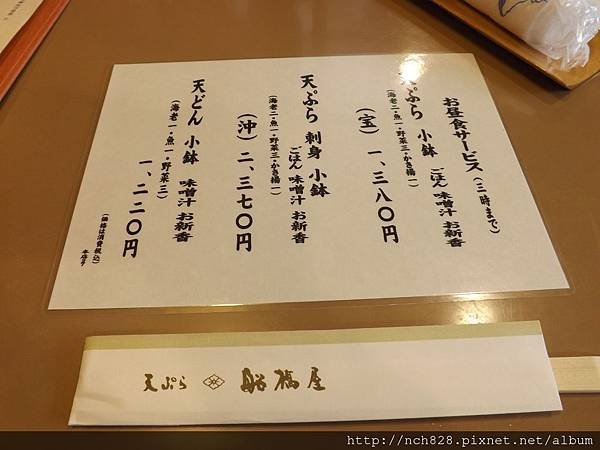 お昼食サービス(三時まで)
天ぷら 小鉢 ごはん 味噌汁 お新香
(海老二・魚一・野菜三・かき揚一)
(宝) 一、三八〇円
天ぷら 刺身 小鉢 ごはん 味噌汁 お新香
(海老二・魚一・野菜三・かき揚一)
(沖) 二、三七〇円
天どん 小鉢 味噌汁 お新香
(海老一・魚一・野菜三)
一、二二〇円
(価格は消費税込)
天ぷら 船橋屋
http://nch828.pixnet.net/album